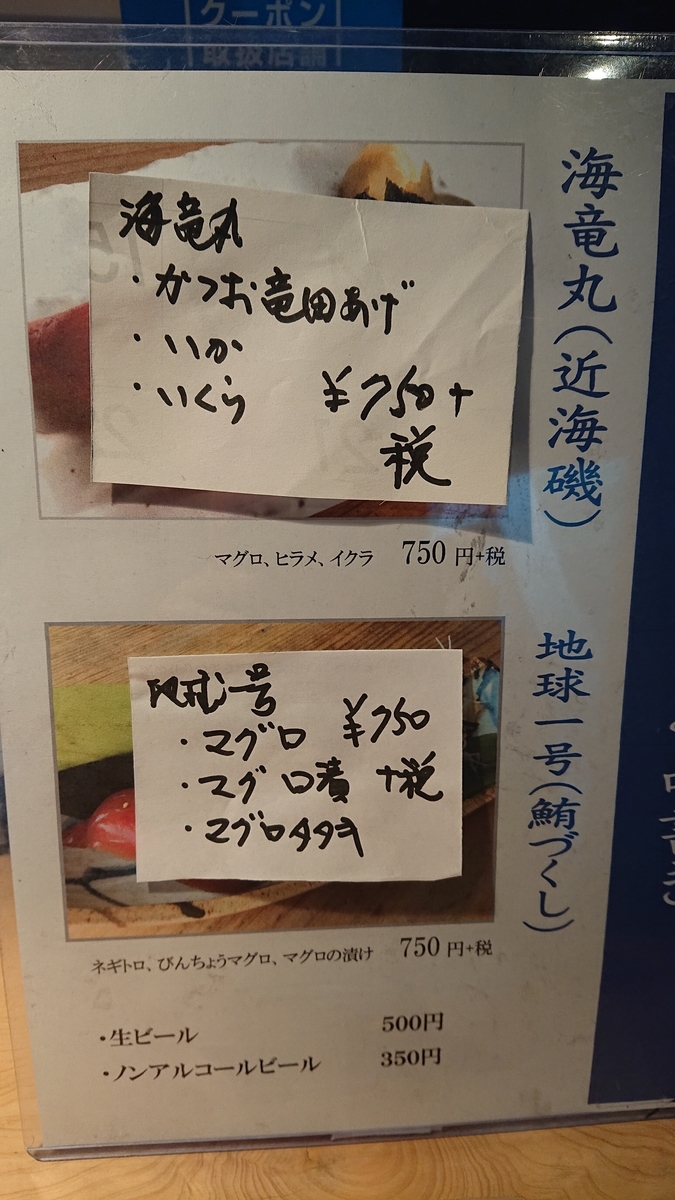 クーポン
取扱店舗
海竜丸(近海磯)
海竜丸
・かつお竜田あげ
・いか
・いくら ¥750+
税
マグロ、ヒラメ、イクラ 750 円+税
地球一号(鮪づくし)
地球一号
・マグロ ¥750
・マグロ漬 +税
・マグロタタキ
ネギトロ、びんちょうマグロ、マグロの漬け 750 円+税
・生ビール 500円
・ノンアルコールビール 350円